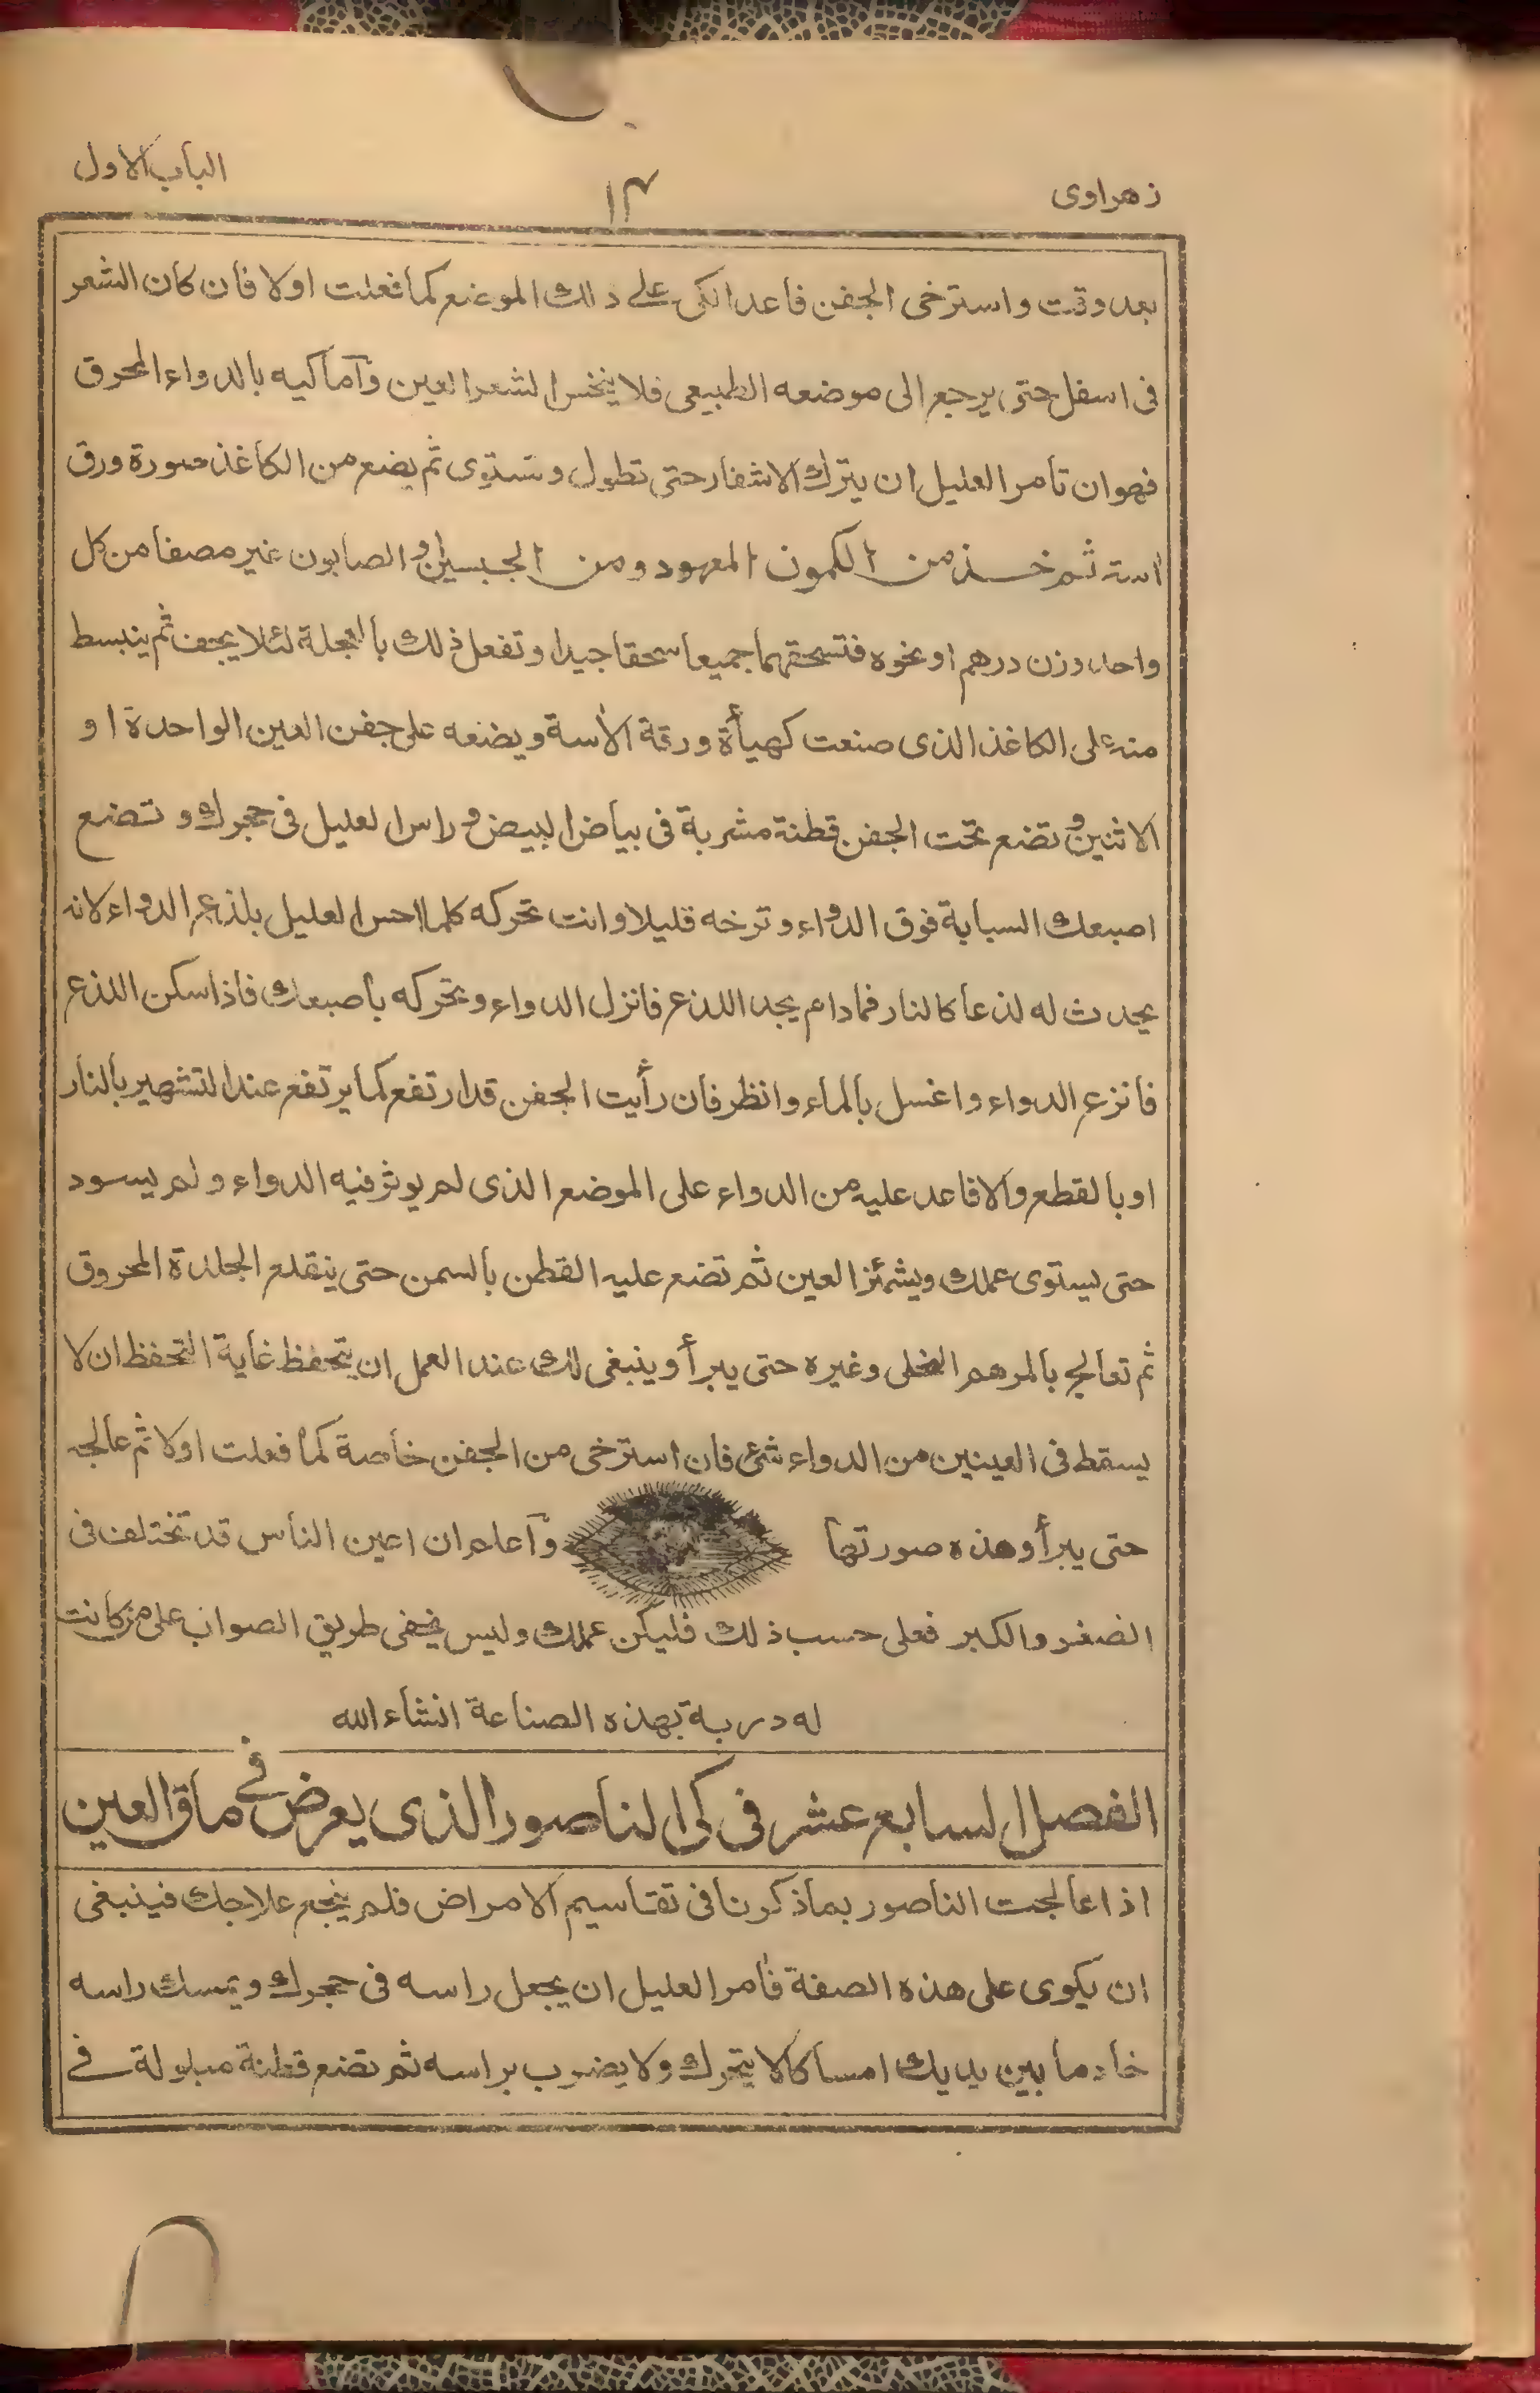 زهراوى
۱۴
الباب الاول
بعد وقت واسترخى الجفن فاعد الكى على ذلك الموضع كما فعلت اولا فان كان الشعر
فى اسفل حتى يرجع الى موضعه الطبيعى فلا ينخس الشعر العين وآما كيه بالدواء المحرق
فهو ان تأمر العليل ان يترك الاشفار حتى تطول وتستوى ثم يضع من الكاغذ صورة ورق
استه ثم خذ من الكمون المعهود ومن الجبسين و الصابون غير مصفا من كل
واحد وزن درهم او نحوه فتسحقهما جميعا سحقا جيدا وتفعل ذلك بالعجلة لئلا يجف ثم ينبسط
منه على الكاغذ الذى صنعت كهيأة ورقة الأسة ويضعه على جفن العين الواحدة او
الاثنين و تضع تحت الجفن قطنة مشربة فى بياض البيض و راس العليل فى حجرك و تضع
اصبعك السبابة فوق الدواء و ترخه قليلا وانت تحركه كلما احس العليل بلذع الدواء لانه
يحدث له لذعا كالنار فمادام يجد اللذع فانزل الدواء وتحركه بأصبعك فاذا سكن اللذع
فأنزع الدواء واغسل بالماء وانظر فان رأيت الجفن قد ارتفع كما يرتفع عند التشهير بالنار
او بالقطع والا فاعد عليه من الدواء على الموضع الذى لم يوثر فيه الدواء ولم يسود
حتى يستوى عملك ويشمئز العين ثم تضع عليه القطن بالسمن حتى ينقلع الجلدة المحروق
ثم تعالج بالمرهم النخلى وغيره حتى يبرأ وينبغى لك عند العمل ان يتحفظ غأية التحفظ ان لا
يسقط فى العينين من الدواء شئ فان استرخى من الجفن خاصة كما فعلت اولا ثم عالجه
حتى يبرأ وهذه صورتها وآعلم ان اعين الناس قد تختلف فى
الصغر والكبر فعلى حسب ذلك فليكن عملك وليس يخفى طريق الصواب على من كانت
له دربة بهذه الصناعة انشاء الله
الفصل السابع عشر فى كى الناصور الذى يعرض فے مأق العين
اذا عالجت الناصور بما ذكرنا فى تقاسيم الامراض فلم ينجع علاجك فينبغى
ان يكوى على هذه الصفة فأمر العليل ان يجعل راسه فى حجرك ويمسك راسه
خادما بين يديك امساكا لا يتحرك ولا يضرب براسه ثم تضع قطنة مبلولة فے